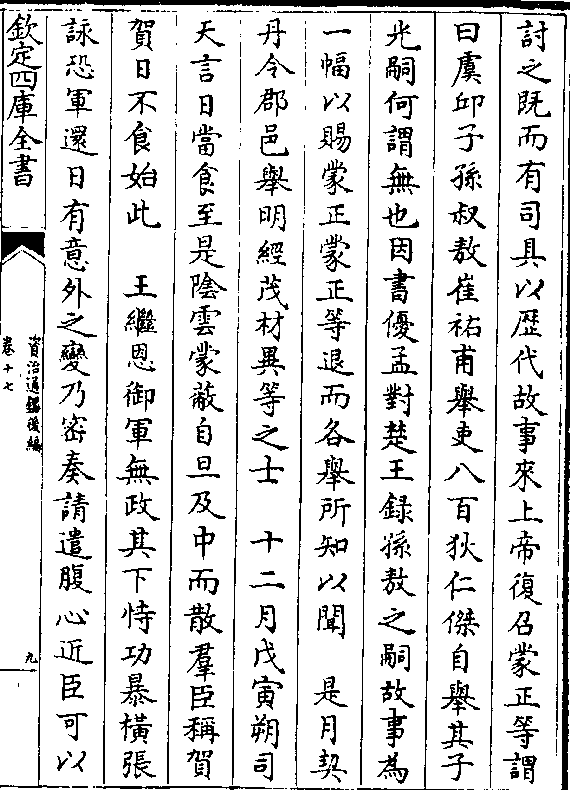 討之既而有司具以歴代故事來上帝復召蒙正等謂
曰虞邱子孫叔敖崔祐甫舉吏八百狄仁傑自舉其子
光嗣何謂無也因書優孟對楚王録孫敖之嗣故事為
一幅以賜蒙正蒙正等退而各舉所知以聞　是月契
丹令郡邑舉明經茂材異等之士　十二月戊寅朔司
天言日當食至是陰雲蒙蔽自旦及中而散羣臣稱賀
賀日不食始此　王繼恩御軍無政其下恃功暴橫張
詠恐軍還日有意外之變乃密奏請遣腹心近臣可以
欽定四庫全書
資治通鑑後編
卷十七
九